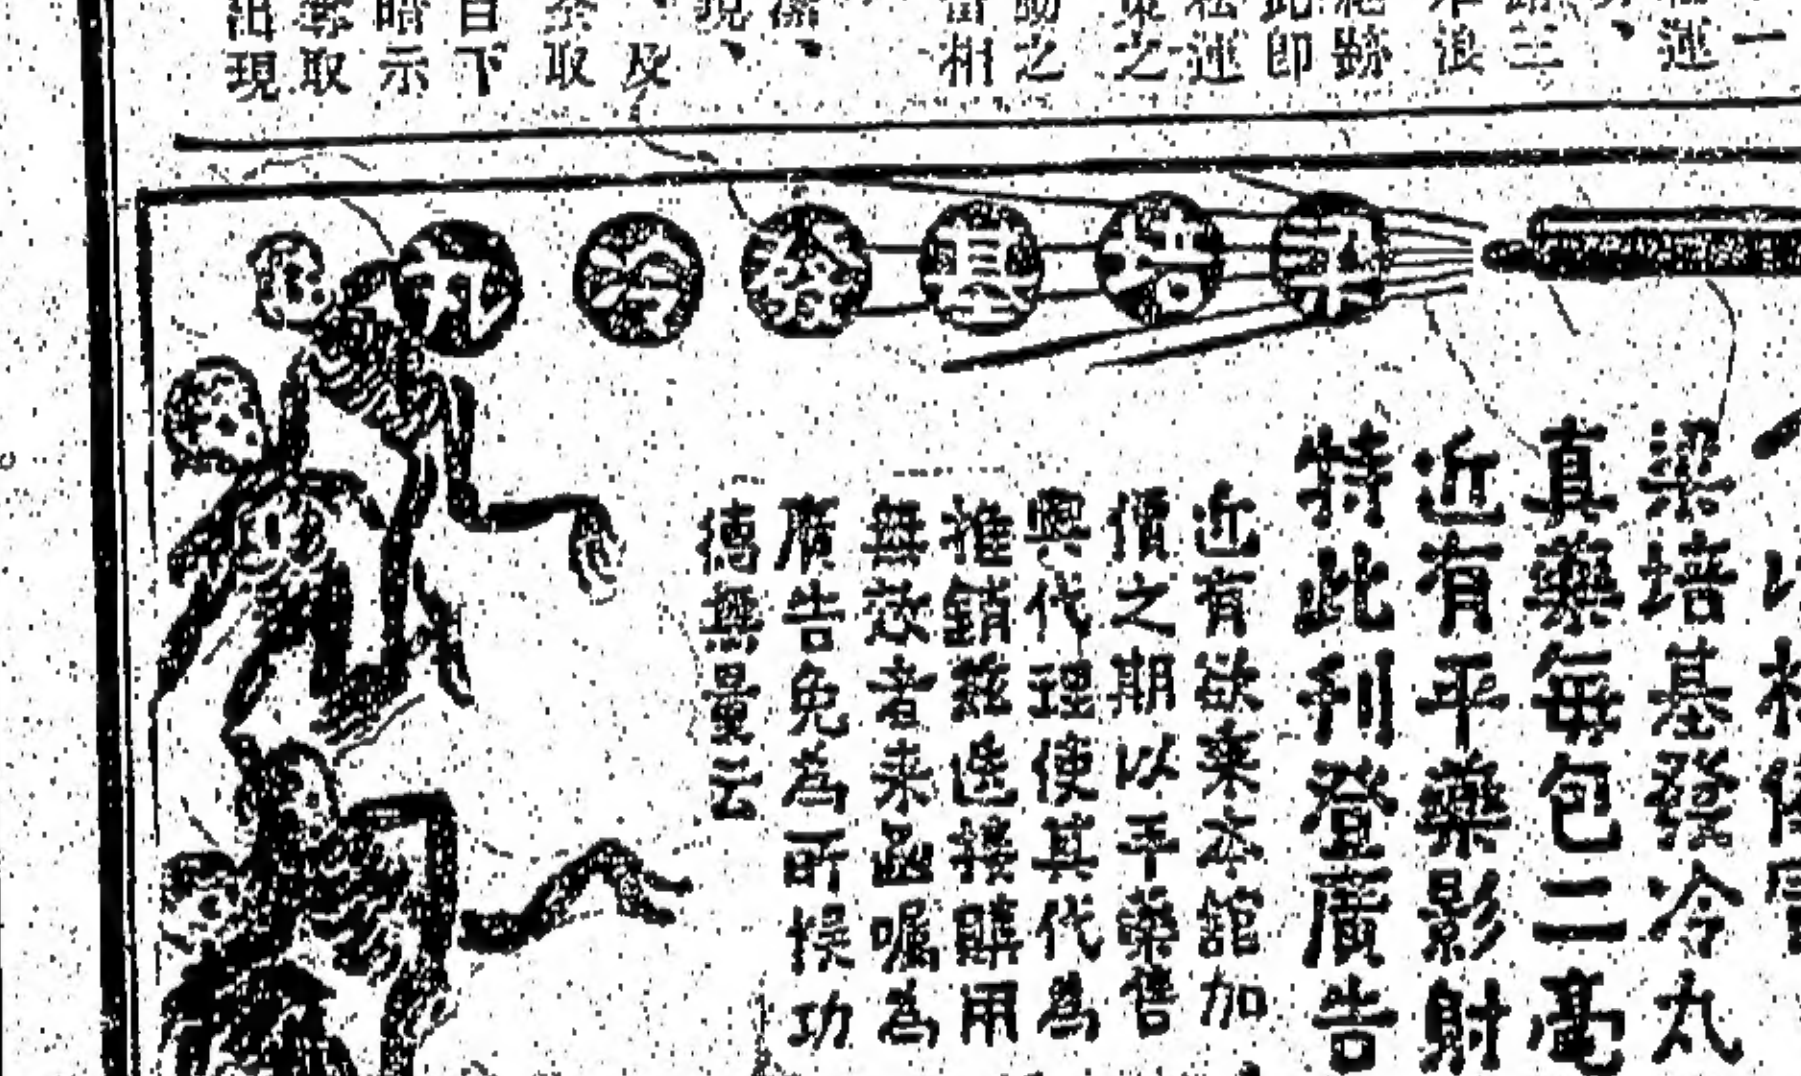 一
運
浪
跡
此即
運
之
之
相
及
取
自下
暗示
奪取
現
梁培基發冷丸
梁培基發冷丸
真藥每包二毫
近有平藥影射
特此刊登廣告
近有欲棄本舘加
價之期以平藥售
與代理使其代為
推銷茲迭接購用
無效者來函囑為
廣告免為所悞功
德無量云